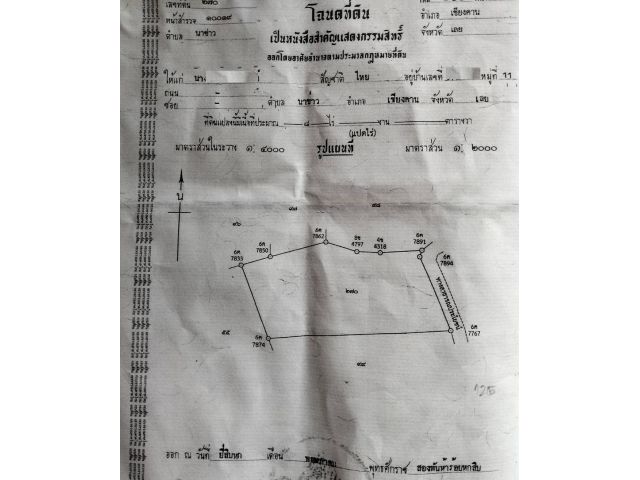 เลขที่ดิน ๒๗๐
โฉนดที่ดิน
อำเภอ เชียงคาน
หน้าสำรวจ ๑๐๐๑๙
เป็นหนังสือสำคัญแสดงกรรมสิทธิ์
ตำบล นาซ่าว
จังหวัด เลย
ออกโดยอาศัยอำนาจตามประมวลกฎหมายที่ดิน
ให้แก่ สัญชาติ ไทย อยู่บ้านเลขที่ หมู่ที่ 11
ถนน
ซอย ตำบล นาซ่าว อำเภอ เชียงคาน จังหวัด เลย
ที่ดินแปลงนี้มีเนื้อที่ประมาณ ๘ ไร่ งาน ตารางวา
(แปดไร่)
มาตราส่วนในระวาง ๑: ๔๐๐๐ รูปแผนที่ มาตราส่วน ๑: ๒๐๐๐
น
๔๗ ๔๘
๔๖
6ค 7833
6ค 7850
6ค 7862
4797
4318
6ค 7891
6ค 7894
๒๗๐
ทางสาธารณประโยชน์
๕๕
6ค 7874
6ค 7767
๔๙
ออก ณ วันที่ ยี่สิบหก เดือน พุทธศักราช สองพันห้าร้อยหกสิบ